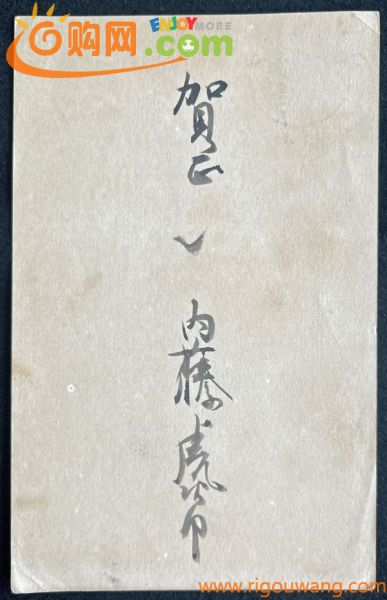 购网
ENJOY MORE
.com
賀正
内藤虎次郎
www.rigouwang.com